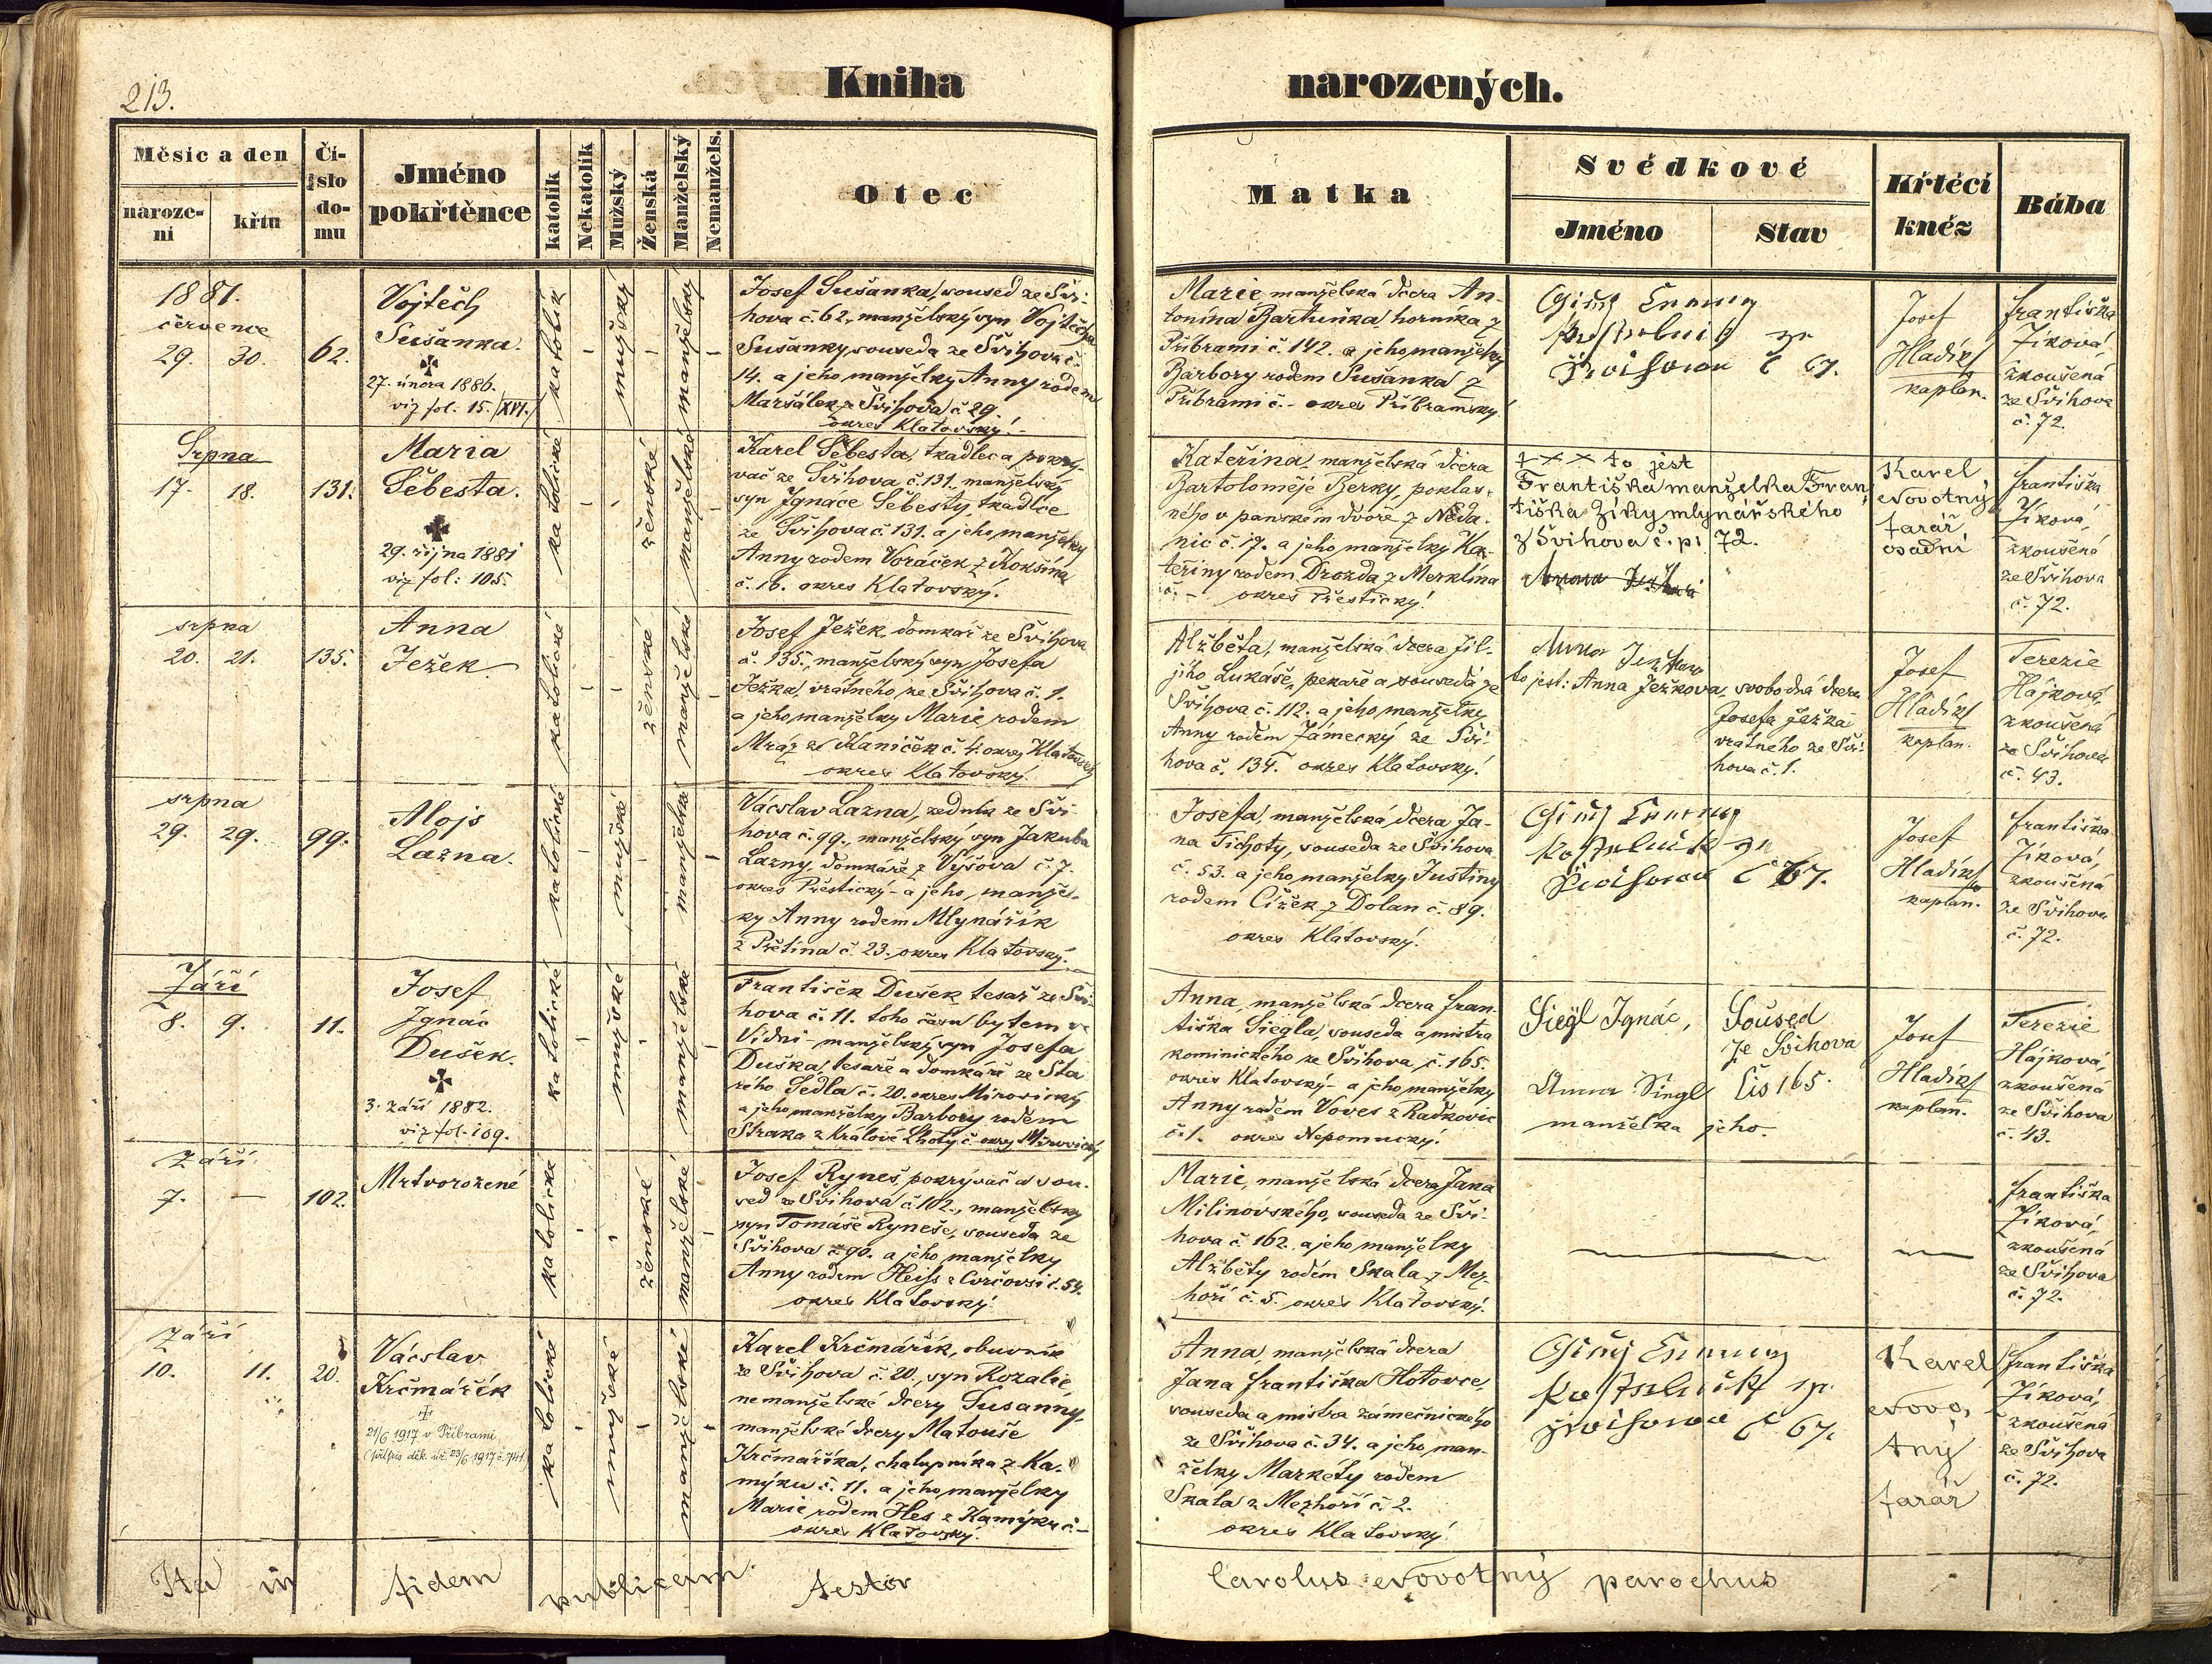 213.
Kniha
narozených.
Měsíc a den
naroze-
ní
křtu
Čí-
slo
do-
mu
Jméno
pokřtěnce
katolík
Nekatolík
Mužský
Ženská
Manželský
Nemanžels.
Otec
Matka
Svědkové
Jméno
Stav
Křtěcí
kněz
Bába
1881.
července
29. 30.
62.
Vojtěch
Sušanka.
27. února 1886.
viz fol. 15. /XVI./
katolík
mužský
manželský
Josef Sušanka, soused ze Švi-
hova č. 62., manželský syn Vojtěcha
Sušanky, souseda ze Švihova č.
14. a jeho manželky Anny rodem
Maršálek z Švihova č 29.
okres Klatovský.
Marie manželská dcera An-
tonína Bartuňka, horníka z
Příbrami č. 142. a jeho manželky
Barbory rodem Sušanka z
Příbrami č. - okres Příbramský.
č 67.
Josef
Hladík
kaplan.
Františka
Jíková,
zkoušená
ze Švihova
č. 72.
Srpna
17. 18.
131.
Maria
Šebesta.
29. října 1881
viz fol: 105.
katolické
ženské
manželské
Karel Šebesta, tkadlec a pokrý-
vač ze Švihova č. 131. manželský
syn Ignáce Šebesty, tkadlce
ze Švihova č. 131. a jeho manželky
Anny rodem Voráček z Kokšína
č. 16. okres Klatovský.
Kateřina, manželská dcera
Bartoloměje Berky, poklas-
ného v panském dvoře z Neda-
nic č. 17. a jeho manželky Ka-
teřiny rodem Drozda z Merklína
č. - okres Přestický.
+ × × to jest
Františka manželka Fran
tiška Jíky mlynářského
z Švihova č. p. 72.
Karel
Novotný
farář
osadní
Františka
Jíková,
zkoušená
ze Švihova
č. 72.
srpna
20. 21.
135.
Anna
Ježek.
katolické
ženské
manželské
Josef Ježek, domkář ze Švihova
č. 135., manželský syn Josefa
Ježka, vrátného ze Švihova č. 1.
a jeho manželky Marie rodem
Mráz z Kaniček č. 4. okres Klatovský
okres Klatovský.
Alžběta, manželská dcera Jil-
jího Lukáše, pekaře a souseda ze
Švihova č. 112. a jeho manželky
Anny rodem Zámecký ze Švi-
hova č. 134. okres Klatovský.
to jest: Anna Ježkova, svobodná dcera
Josefa Ježka
vrátného ze Švi-
hova č. 1.
Josef
Hladík
kaplan.
Terezie
Hájková,
zkoušená
ze Švihova
č. 43.
srpna
29. 29.
99.
Alojs
Lazna.
katolické
mužské
manželské
Václav Lazna, zedník ze Švi-
hova č. 99., manželský syn Jakuba
Lazny, domkáře z Vyšova č. 7.
okres Přestický - a jeho manžel-
ky Anny rodem Mlynářík
z Přetína č. 23. okres Klatovský.
Josefa, manželská dcera Ja-
na Tichoty, souseda ze Švihova
č. 53. a jeho manželky Justiny
rodem Čížek z Dolan č. 89.
okres Klatovský.
č 67.
Josef
Hladík
kaplan.
Františka
Jíková,
zkoušená
ze Švihova
č. 72.
Září
8. 9.
11.
Josef
Ignác
Dušek.
3. září 1882.
viz fol. 109.
katolické
mužské
manželské
František Dušek tesař ze Švi-
hova č. 11. toho času bytem ve
Vídni - manželský syn Josefa
Duška, tesaře a domkáře ze Sta
rého Sedla č. 20. okres Mirovický
a jeho manželky Barbory rodem
Straka z Králové Lhoty č. okres Mirovický
Anna, manželská dcera Fran-
tiška Siegla, souseda a mistra
kominického ze Švihova, č. 165.
okres Klatovský - a jeho manželky
Anny rodem Voves z Radkovic
č. 1. okres Nepomucký.
Siegl Ignác,
Soused
ze Švihova
čís 165.
Anna Singl
manželka jeho.
Josef
Hladík
kaplan.
Terezie
Hájková,
zkoušená
ze Švihova
č. 43.
září
7. —
102.
Mrtvorozené
katolické
ženské
manželské
Josef Ryneš, pokrývač a sou-
sed ze Švihova č 102., manželský
syn Tomáše Ryneše, souseda ze
Švihova č. 90. a jeho manželky
Anny rodem Heiss z č. 54.
okres Klatovský.
Marie, manželská dcera Jana
Milinovského, souseda ze Švi-
hova č 162. a jeho manželky
Alžběty rodem Skala z Mez-
hoří č. 5. okres Klatovský.
Františka
Jíková,
zkoušená
ze Švihova
č. 72.
září
10. 11.
20.
Václav
Krčmářík
21/6 1917 v Příbrami
(přípis děk. úř. 23/6 1917 č. 741)
katolické
mužské
manželské
Karel Krčmářík, obuvník
ze Švihova č. 20., syn Rozalie,
nemanželské dcery Zusanny,
manželské dcery Matouše
Krčmáříka, chalupníka z Ka-
mýku č. 11. a jeho manželky
Marie rodem Hes z Kamýku č. -
okres Klatovský.
Anna, manželská dcera
Jana Františka Hotovce,
souseda a mistra zámečnického
ze Švihova č. 34. a jeho man-
želky Markéty rodem
Skala z Mezhoří č. 2.
okres Klatovský.
č 67.
Karel
Novo,
tný
farář
Františka
Jíková,
zkoušená
ze Švihova
č. 72.
Ita in fidem publicam testor
Carolus Novotný parochus